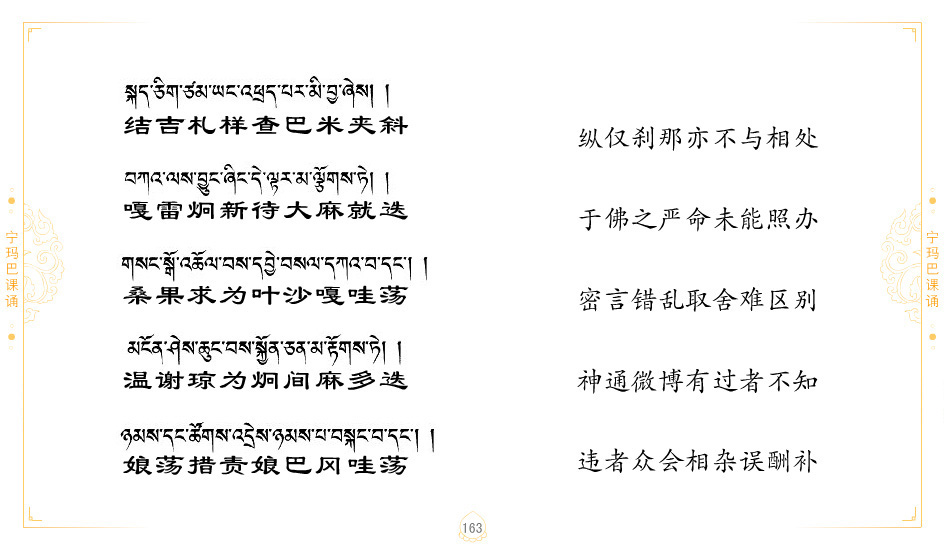 སྐད་ཅིག་ཙམ་ཡང་འཕྲད་པར་མི་བྱ་ཞེས། །
结吉札样查巴米夹斜
བཀའ་ལས་བྱུང་ཞིང་དེ་ལྟར་མ་ལྕོགས་ཏེ། །
嘎雷炯新待大麻就迭
གསང་སྒོ་འཆོལ་བས་དབྱེ་བསལ་དཀའ་བ་དང་། །
桑果求为叶沙嘎哇荡
མངོན་ཤེས་ཆུང་བས་སྐྱོན་ཅན་མ་རྟོགས་ཏེ། །
温谢琼为炯间麻多迭
ཉམས་དང་ཚོགས་འདྲེས་ཉམས་པ་བསྐང་བ་དང་། །
娘荡措责娘巴冈哇荡
纵仅刹那亦不与相处
于佛之严命未能照办
密言错乱取舍难区别
神通微博有过者不知
违者众会相杂误酬补
宁玛巴课诵
宁玛巴课诵
163